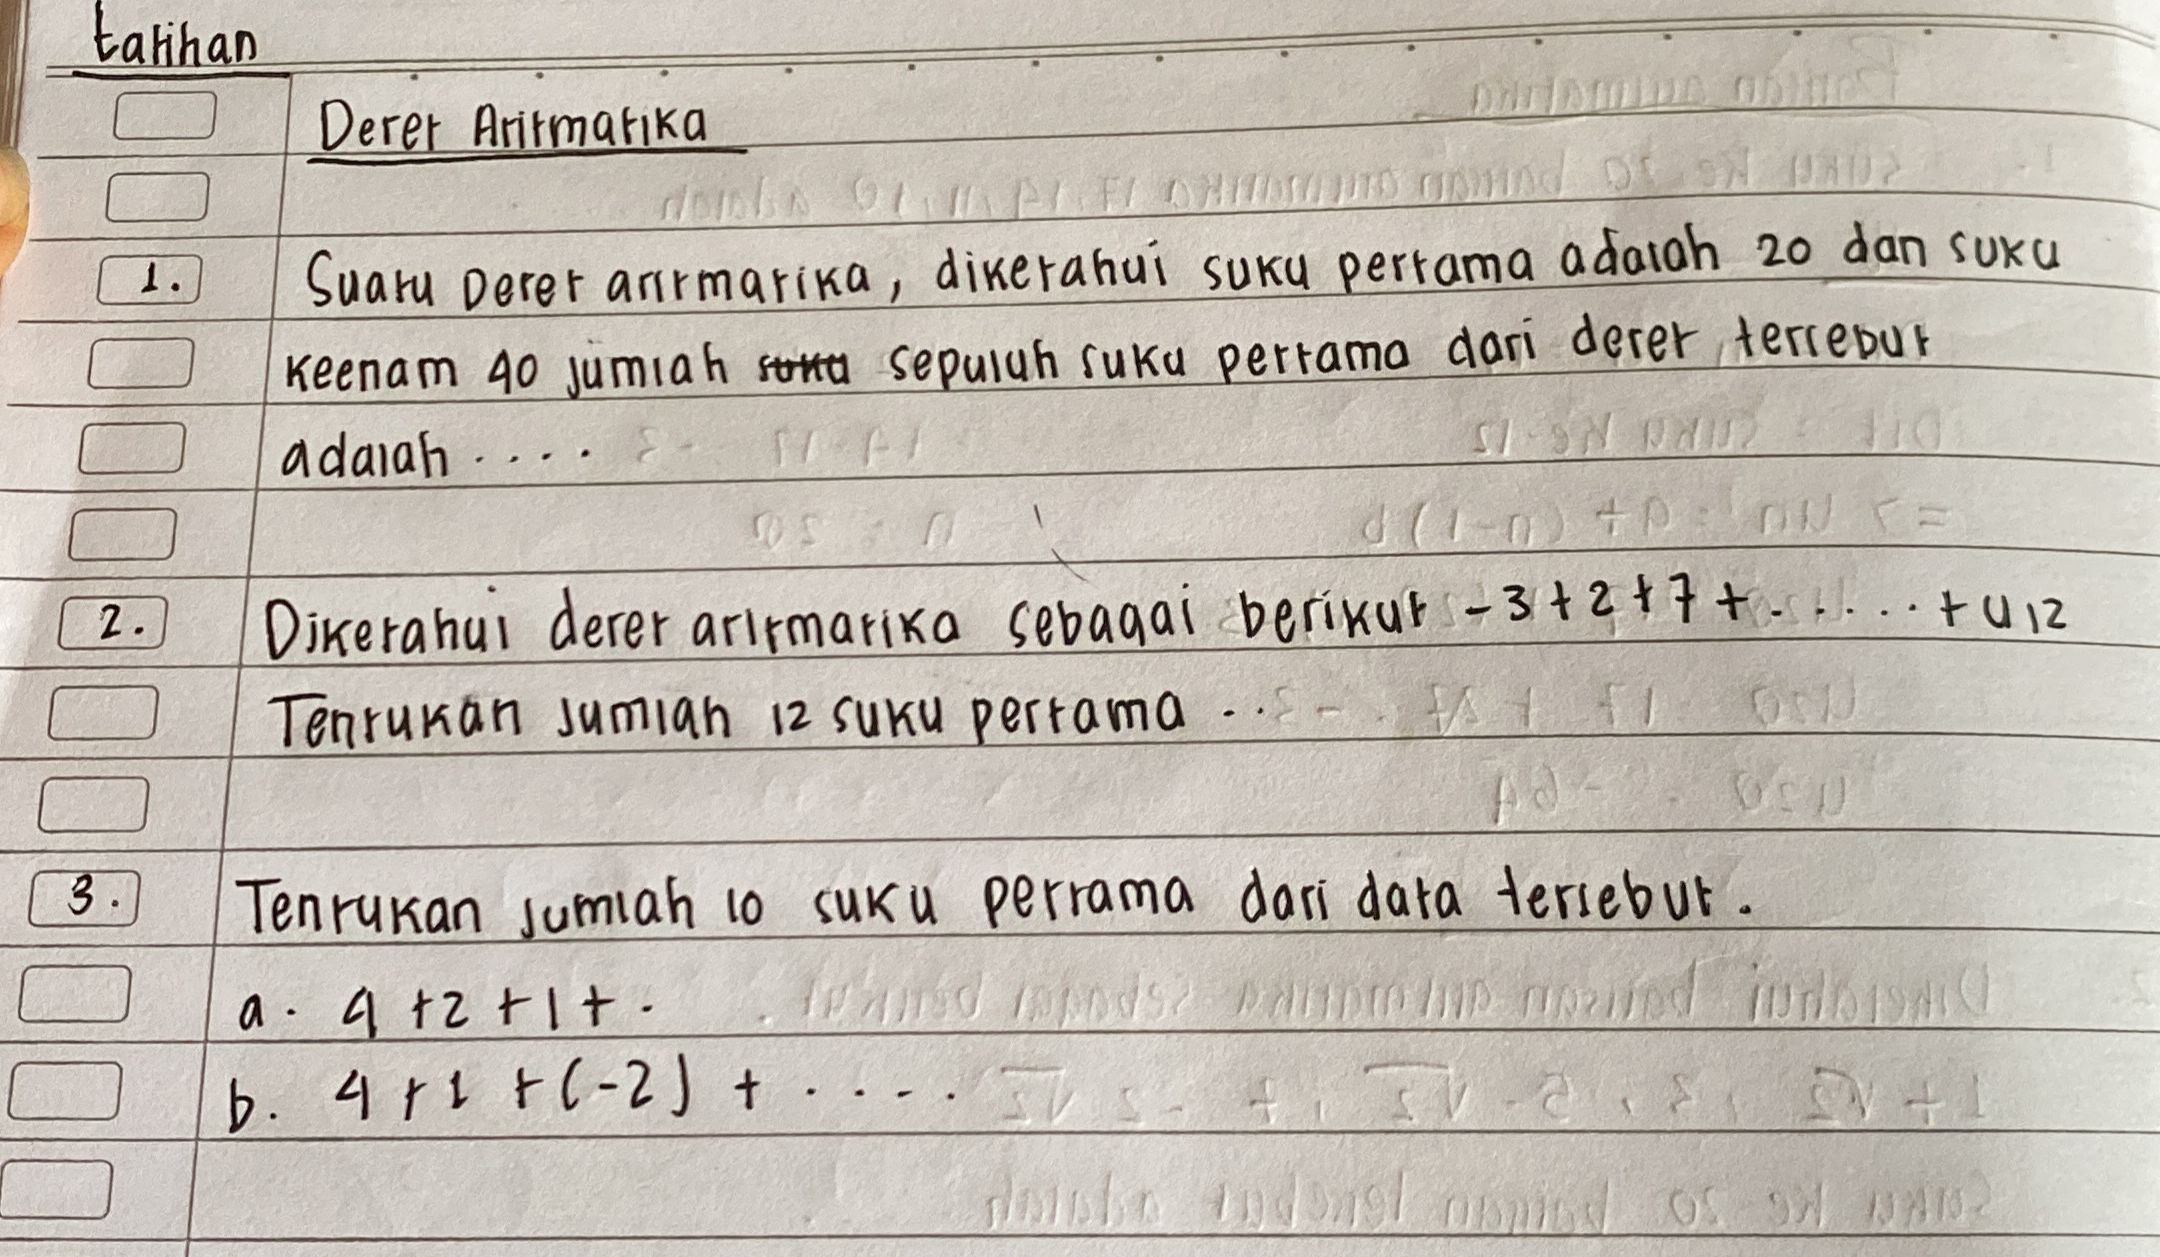 Latihan
Deret Aritmatika
1. Suatu Deret aritmatika, diketahui suku pertama adalah 20 dan suku
keenam 40 jumlah suku sepuluh suku pertama dari deret tersebut
adalah ....
2. Diketahui deret aritmatika sebagai berikut -3+2+7+.....+U12
Tentukan jumlah 12 suku pertama ..
3. Tentukan jumlah 10 suku pertama dari data tersebut.
a. 4+2+1+.
b. 4+1+(-2)+....